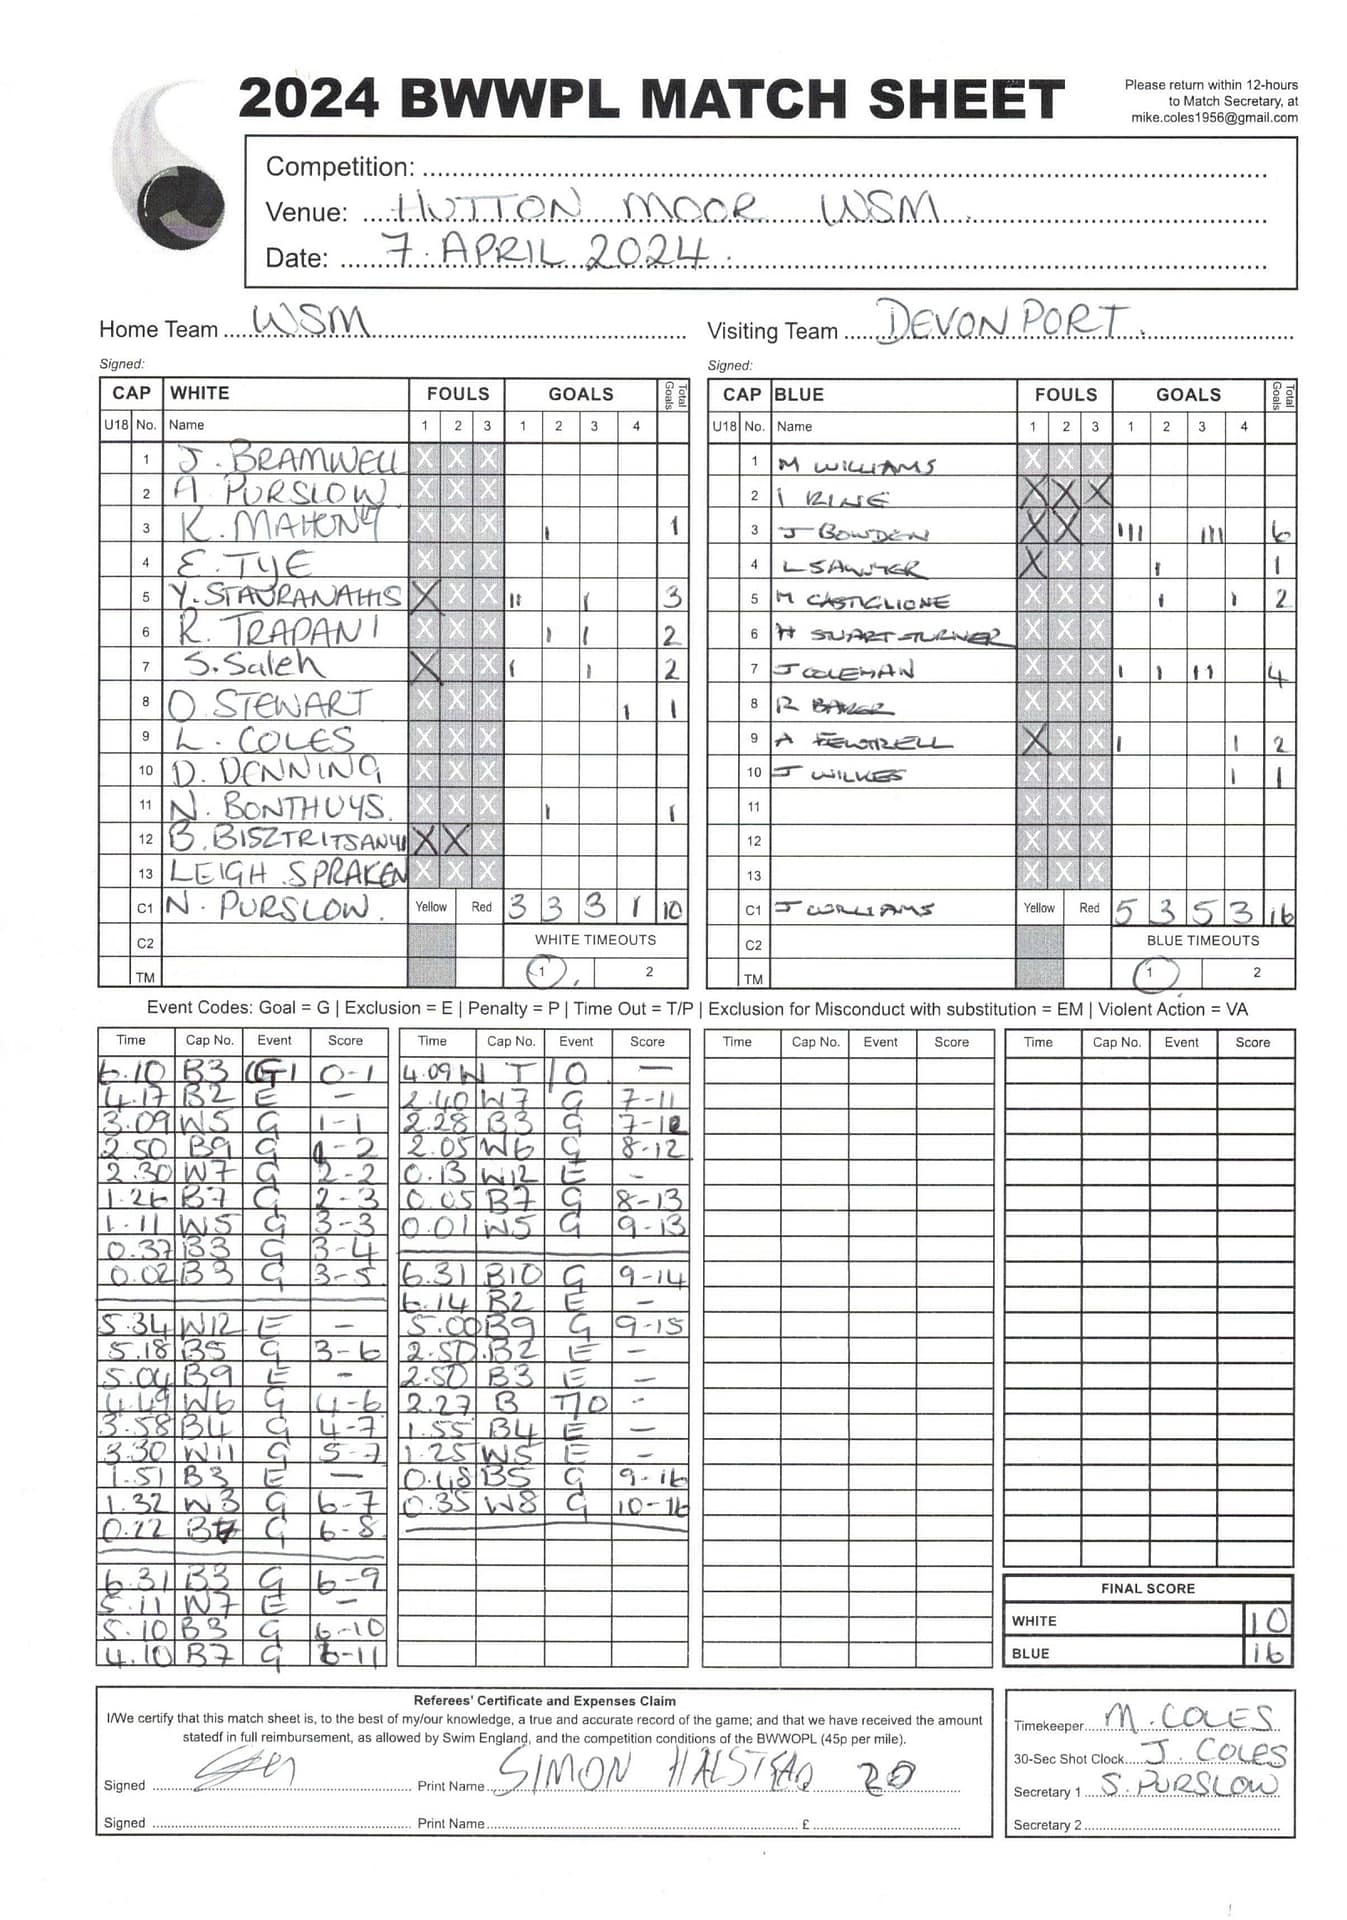 2024 BWWPL MATCH SHEET
Please return within 12-hours
to Match Secretary, at
mike.coles1956@gmail.com
Competition:
Venue: HUTTON MOOR WSM
Date: 7. APRIL 2024
Home Team WSM
Visiting Team DEVONPORT
Signed:
Signed:
CAP WHITE FOULS GOALS Total Goals
U18 No. Name 1 2 3 1 2 3 4
1 J. BRAMWELL X X X
2 A PURSLOW X X X
3 K. MAHONY X X X I 1
4 E. TYE X X X
5 Y. STAVRANAHIS X X X II I 3
6 R. TRAPANI X X X I I 2
7 S. Saleh X X X I I 2
8 O STEWART X X X I 1
9 L. COLES X X X
10 D. DENNING X X X
11 N. BONTHUYS. X X X I 1
12 B. BISZTRITSANYI X X X
13 LEIGH SPRAKEN X X X
C1 N. PURSLOW. Yellow Red 3 3 3 1 10
C2 WHITE TIMEOUTS
TM 1 2
CAP BLUE FOULS GOALS Total Goals
U18 No. Name 1 2 3 1 2 3 4
1 M WILLIAMS X X X
2 I RINE X X X
3 J BOWDEN X X X III III 6
4 L SAWYER X X X I 1
5 M CASTIGLIONE X X X I I 2
6 H STUART-TURNER X X X
7 J COLEMAN X X X I I II 4
8 R BAKER X X X
9 A FEWTRELL X X X I I 2
10 J WILKES X X X I 1
11 X X X
12 X X X
13 X X X
C1 J WILLIAMS Yellow Red 5 3 5 3 16
C2 BLUE TIMEOUTS
TM 1 2
Event Codes: Goal = G | Exclusion = E | Penalty = P | Time Out = T/P | Exclusion for Misconduct with substitution = EM | Violent Action = VA
Time Cap No. Event Score
6.10 B3 G 0-1
4.17 B2 E –
3.09 W5 G 1-1
2.50 B9 G 1-2
2.30 W7 G 2-2
1.26 B7 G 2-3
1.11 W5 G 3-3
0.37 B3 G 3-4
0.02 B3 G 3-5
5.34 W12 E –
5.18 B5 G 3-6
5.04 B9 E –
4.49 W6 G 4-6
3.58 B4 G 4-7
3.30 W11 G 5-7
1.51 B3 E –
1.32 W3 G 6-7
0.22 B7 G 6-8
6.31 B3 G 6-9
5.11 W7 E –
5.10 B3 G 6-10
4.10 B7 G 6-11
Time Cap No. Event Score
4.09 W T/O –
2.40 W7 G 7-11
2.28 B3 G 7-12
2.05 W6 G 8-12
0.13 W12 E –
0.05 B7 G 8-13
0.01 W5 G 9-13
6.31 B10 G 9-14
6.14 B2 E –
5.00 B9 G 9-15
2.50 B2 E –
2.50 B3 E –
2.27 B T/O –
1.55 B4 E –
1.25 W5 E –
0.48 B5 G 9-16
0.35 W8 G 10-16
Time Cap No. Event Score
Time Cap No. Event Score
FINAL SCORE
WHITE 10
BLUE 16
Referees' Certificate and Expenses Claim
I/We certify that this match sheet is, to the best of my/our knowledge, a true and accurate record of the game; and that we have received the amount
statedf in full reimbursement, as allowed by Swim England, and the competition conditions of the BWWOPL (45p per mile).
Signed Print Name SIMON HALSTEAD 20
Signed Print Name £
Timekeeper M. COLES
30-Sec Shot Clock J. COLES
Secretary 1 S. PURSLOW
Secretary 2